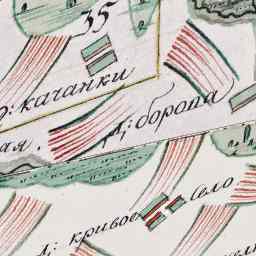 35
д: качанки
ая. д: боропа
д: кривое село